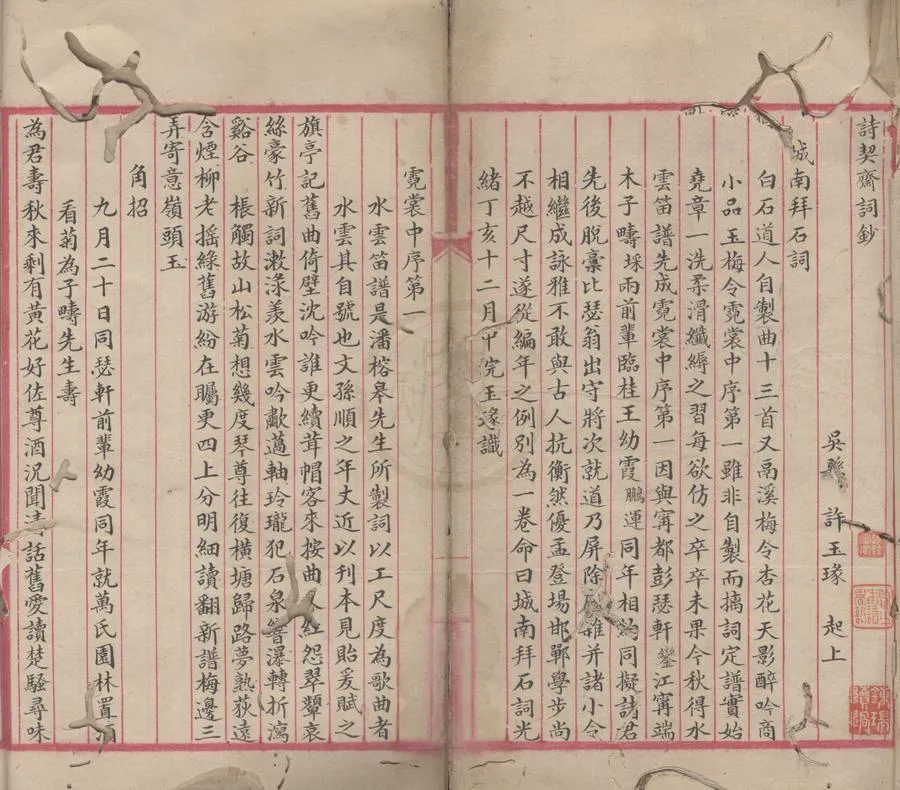 詩契齋詞鈔
吳縣 許玉瑑 起上
城南拜石詞
白石道人自製曲十三首又鬲溪梅令杏花天影醉吟商
小品玉梅令霓裳中序第一雖非自製而摘詞定譜實始
堯章一洗柔滑纖縟之習每欲仿之卒卒未果今秋得水
雲笛譜先成霓裳中序第一因與甯都彭瑟軒鑾江甯端
木子疇埰兩前輩臨桂王幼霞鵬運同年相約同擬諸君
先後脫稾比瑟翁出守將次就道乃屏除雜并諸小令
相繼成詠雅不敢與古人抗衡然優孟登場邯鄲學步尚
不越尺寸遂從編年之例別為一卷命曰城南拜石詞光
緒丁亥十二月中浣玉瑑識
霓裳中序第一
水雲笛譜是潘榕皋先生所製詞以工尺度為歌曲者
水雲其自號也文孫順之年丈近以刊本見貽爰賦之
旗亭記舊曲倚壁沈吟誰更續茸帽客來按曲紅怨翠顰哀
絲豪竹新詞漱渌羨水雲吟歗薖軸玲瓏犯石泉瀑轉折瀉
谿谷 棖觸故山松菊想幾度琴尊往復橫塘歸路夢熟荻遠
含煙柳老搖綠舊游紛在矚更四上分明細讀翻新譜梅邊三
弄寄意嶺頭玉
角招
九月二十日同瑟軒前輩幼霞同年就萬氏園林置
看菊為子疇先生壽
為君壽秋來剩有黃花好佐尊酒況聞清話舊愛讀楚騷尋味